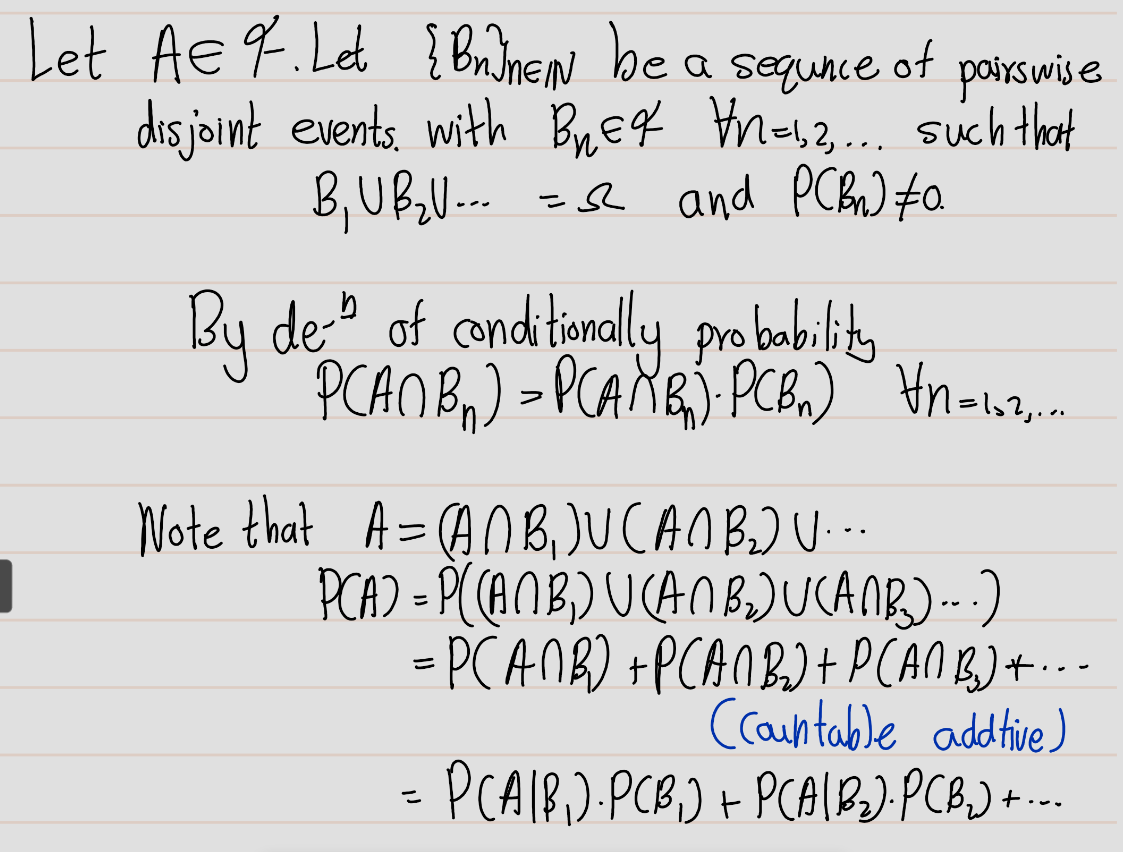 Let A∈ℱ. Let {Bn}n∈ℕ be a sequnce of pairswise
disjoint events. with Bn∈ℱ ∀n=1,2,... such that
B₁∪B₂∪... = Ω and P(Bn)≠0.
By de-ⁿ of conditionally probability
P(A∩Bn) = P(A∩Bn)·P(Bn) ∀n=1,2,...
Note that A=(A∩B₁)∪(A∩B₂)∪...
P(A) = P((A∩B₁)∪(A∩B₂)∪(A∩B₃)...)
= P(A∩B₁)+P(A∩B₂)+P(A∩B₃)+...
(Countable addtive)
= P(A|B₁)·P(B₁)+P(A|B₂)·P(B₂)+...